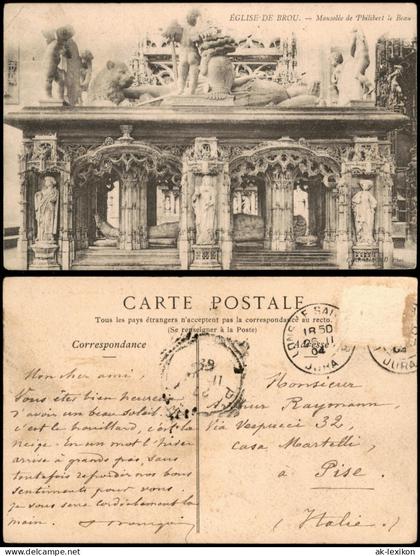 ÉGLISE DE BROU. — Mausolée de Philibert le Beau
CARTE POSTALE
Tous les pays étrangers n'acceptent pas la correspondance au recto.
(Se renseigner à la Poste)
Correspondance
Adresse
LONS-LE-SAU
18 50
11
04
JURA
JURA
Mon cher ami,
Vous êtes bien heureux
d'avoir un beau soleil
c'est le brouillard, c'est la
neige. En un mot l'hiver
arrive à grands pas sans
toutefois refroidir nos bons
sentiments pour vous,
je vous serre cordialement la
main.
Monsieur
Arthur Raymann,
Via Vespucci 32,
casa Martelli,
à
Pise,
(Italie)
ak-lexikon.com